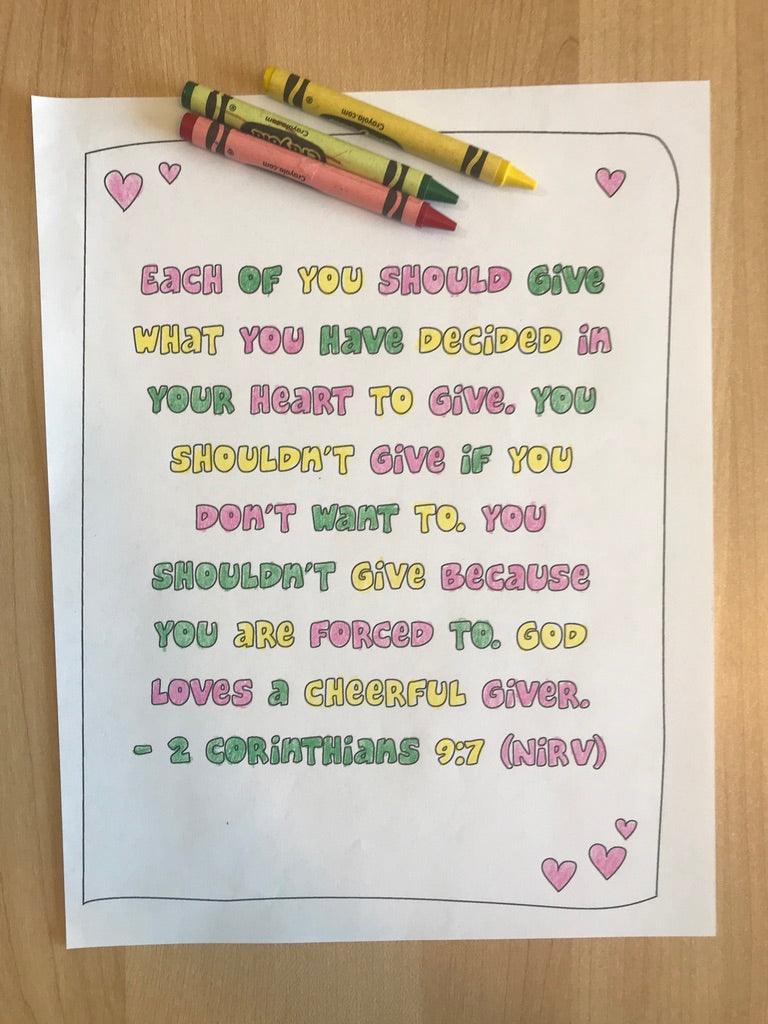 Crayola.com
Crayola.com
Crayola
Crayola.com
EacH OF YOU SHOULD Give
WHaT YOU Have DeCiDeD in
YOUR HeaRT TO Give. YOU
SHOULDn'T Give iF YOU
DOn'T WanT TO. YOU
SHOULDn'T Give BeCaUSe
YOU aRe FORCeD TO. GOD
LOVeS a CHeeRFUL GiveR.
- 2 CORinTHianS 9:7 (NiRV)